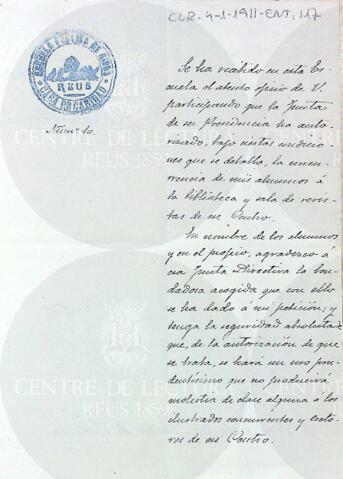 CLR-4-1-1911-ENT, 117
REUS
CASA DE CARIDAD
Núm.º 10.
Se ha recibido en esta Es-
cuela el atento oficio de V.
participando que la Junta
de su Presidencia ha auto-
rizado, bajo ciertas condicio-
nes que se detalla, la concu-
rrencia de mis alumnos á
la biblioteca y sala de revis-
tas de ese Centro.
En nombre de los alumnos
y en el propio, agradezco á
esa Junta Directiva la bon-
dadosa acogida que con ello
se ha dado á mi petición; y
tenga la seguridad absoluta
que, de la autorización de que
se trata, se hará un uso pru-
dentísimo que no producirá
molestia de clase alguna á los
ilustrados concurrentes y lecto-
res de ese Centro.
CENTRE DE LECTURA
REUS 1859
CENTRE DE LECTURA
REUS 1859